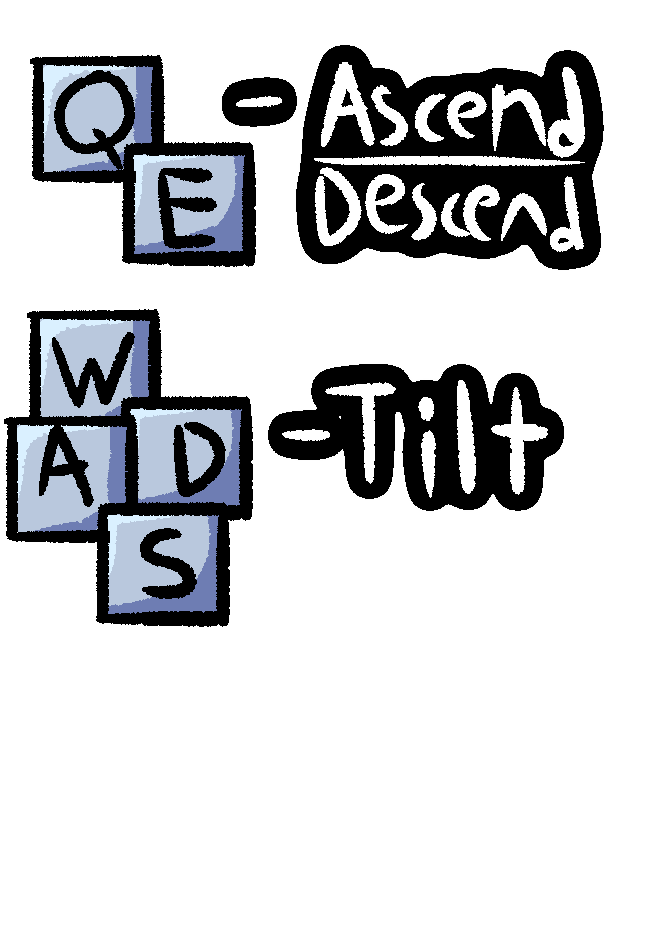 Q
E
- Ascend
Descend
W
A D
S
- Tilt